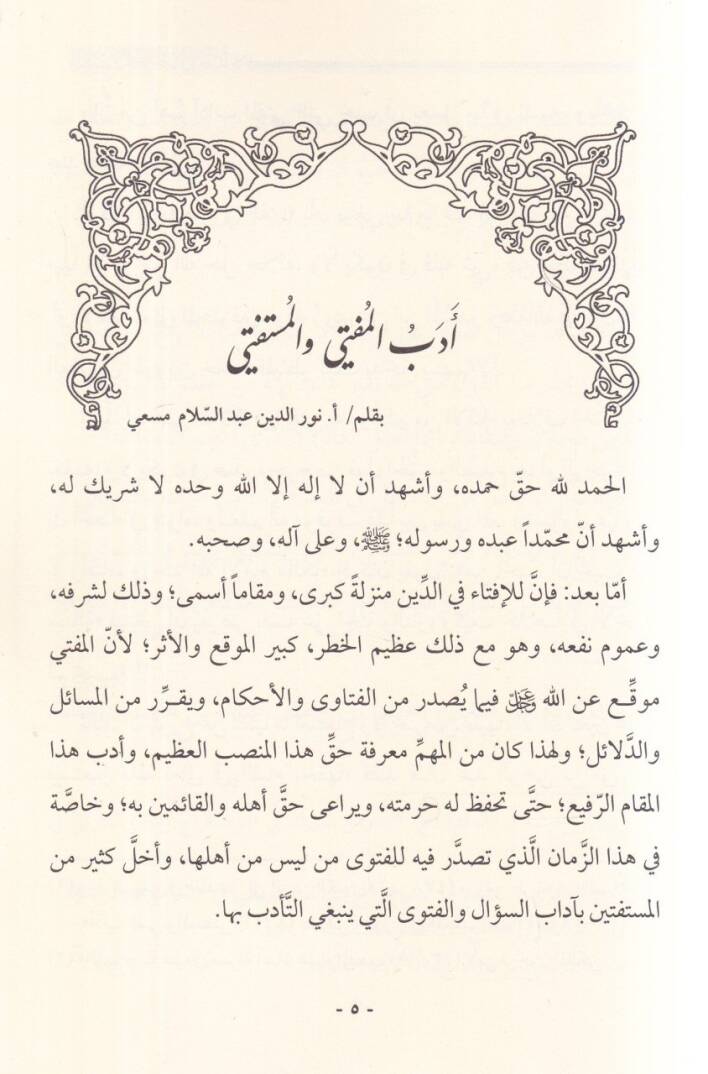 أَدَبُ المُفتي والمُستفتي
بقلم/ أ. نور الدين عبد السّلام مسعي
الحمد لله حقّ حمده، وأشهد أن لا إله إلا الله وحده لا شريك له،
وأشهد أنّ محمّداً عبده ورسوله؛ ﷺ، وعلى آله، وصحبه.
أمّا بعد: فإنَّ للإفتاء في الدِّين منزلةً كبرى، ومقاماً أسمى؛ وذلك لشرفه،
وعموم نفعه، وهو مع ذلك عظيم الخطر، كبير الموقع والأثر؛ لأنّ المفتي
موقِّع عن الله عزوجل فيما يُصدر من الفتاوى والأحكام، ويقرِّر من المسائل
والدَّلائل؛ ولهذا كان من المهمِّ معرفة حقِّ هذا المنصب العظيم، وأدب هذا
المقام الرّفيع؛ حتَّى تحفظ له حرمته، ويراعى حقَّ أهله والقائمين به؛ وخاصَّة
في هذا الزَّمان الَّذي تصدَّر فيه للفتوى من ليس من أهلها، وأخلَّ كثير من
المستفتين بآداب السؤال والفتوى الَّتي ينبغي التَّأدب بها.
- ٥ -